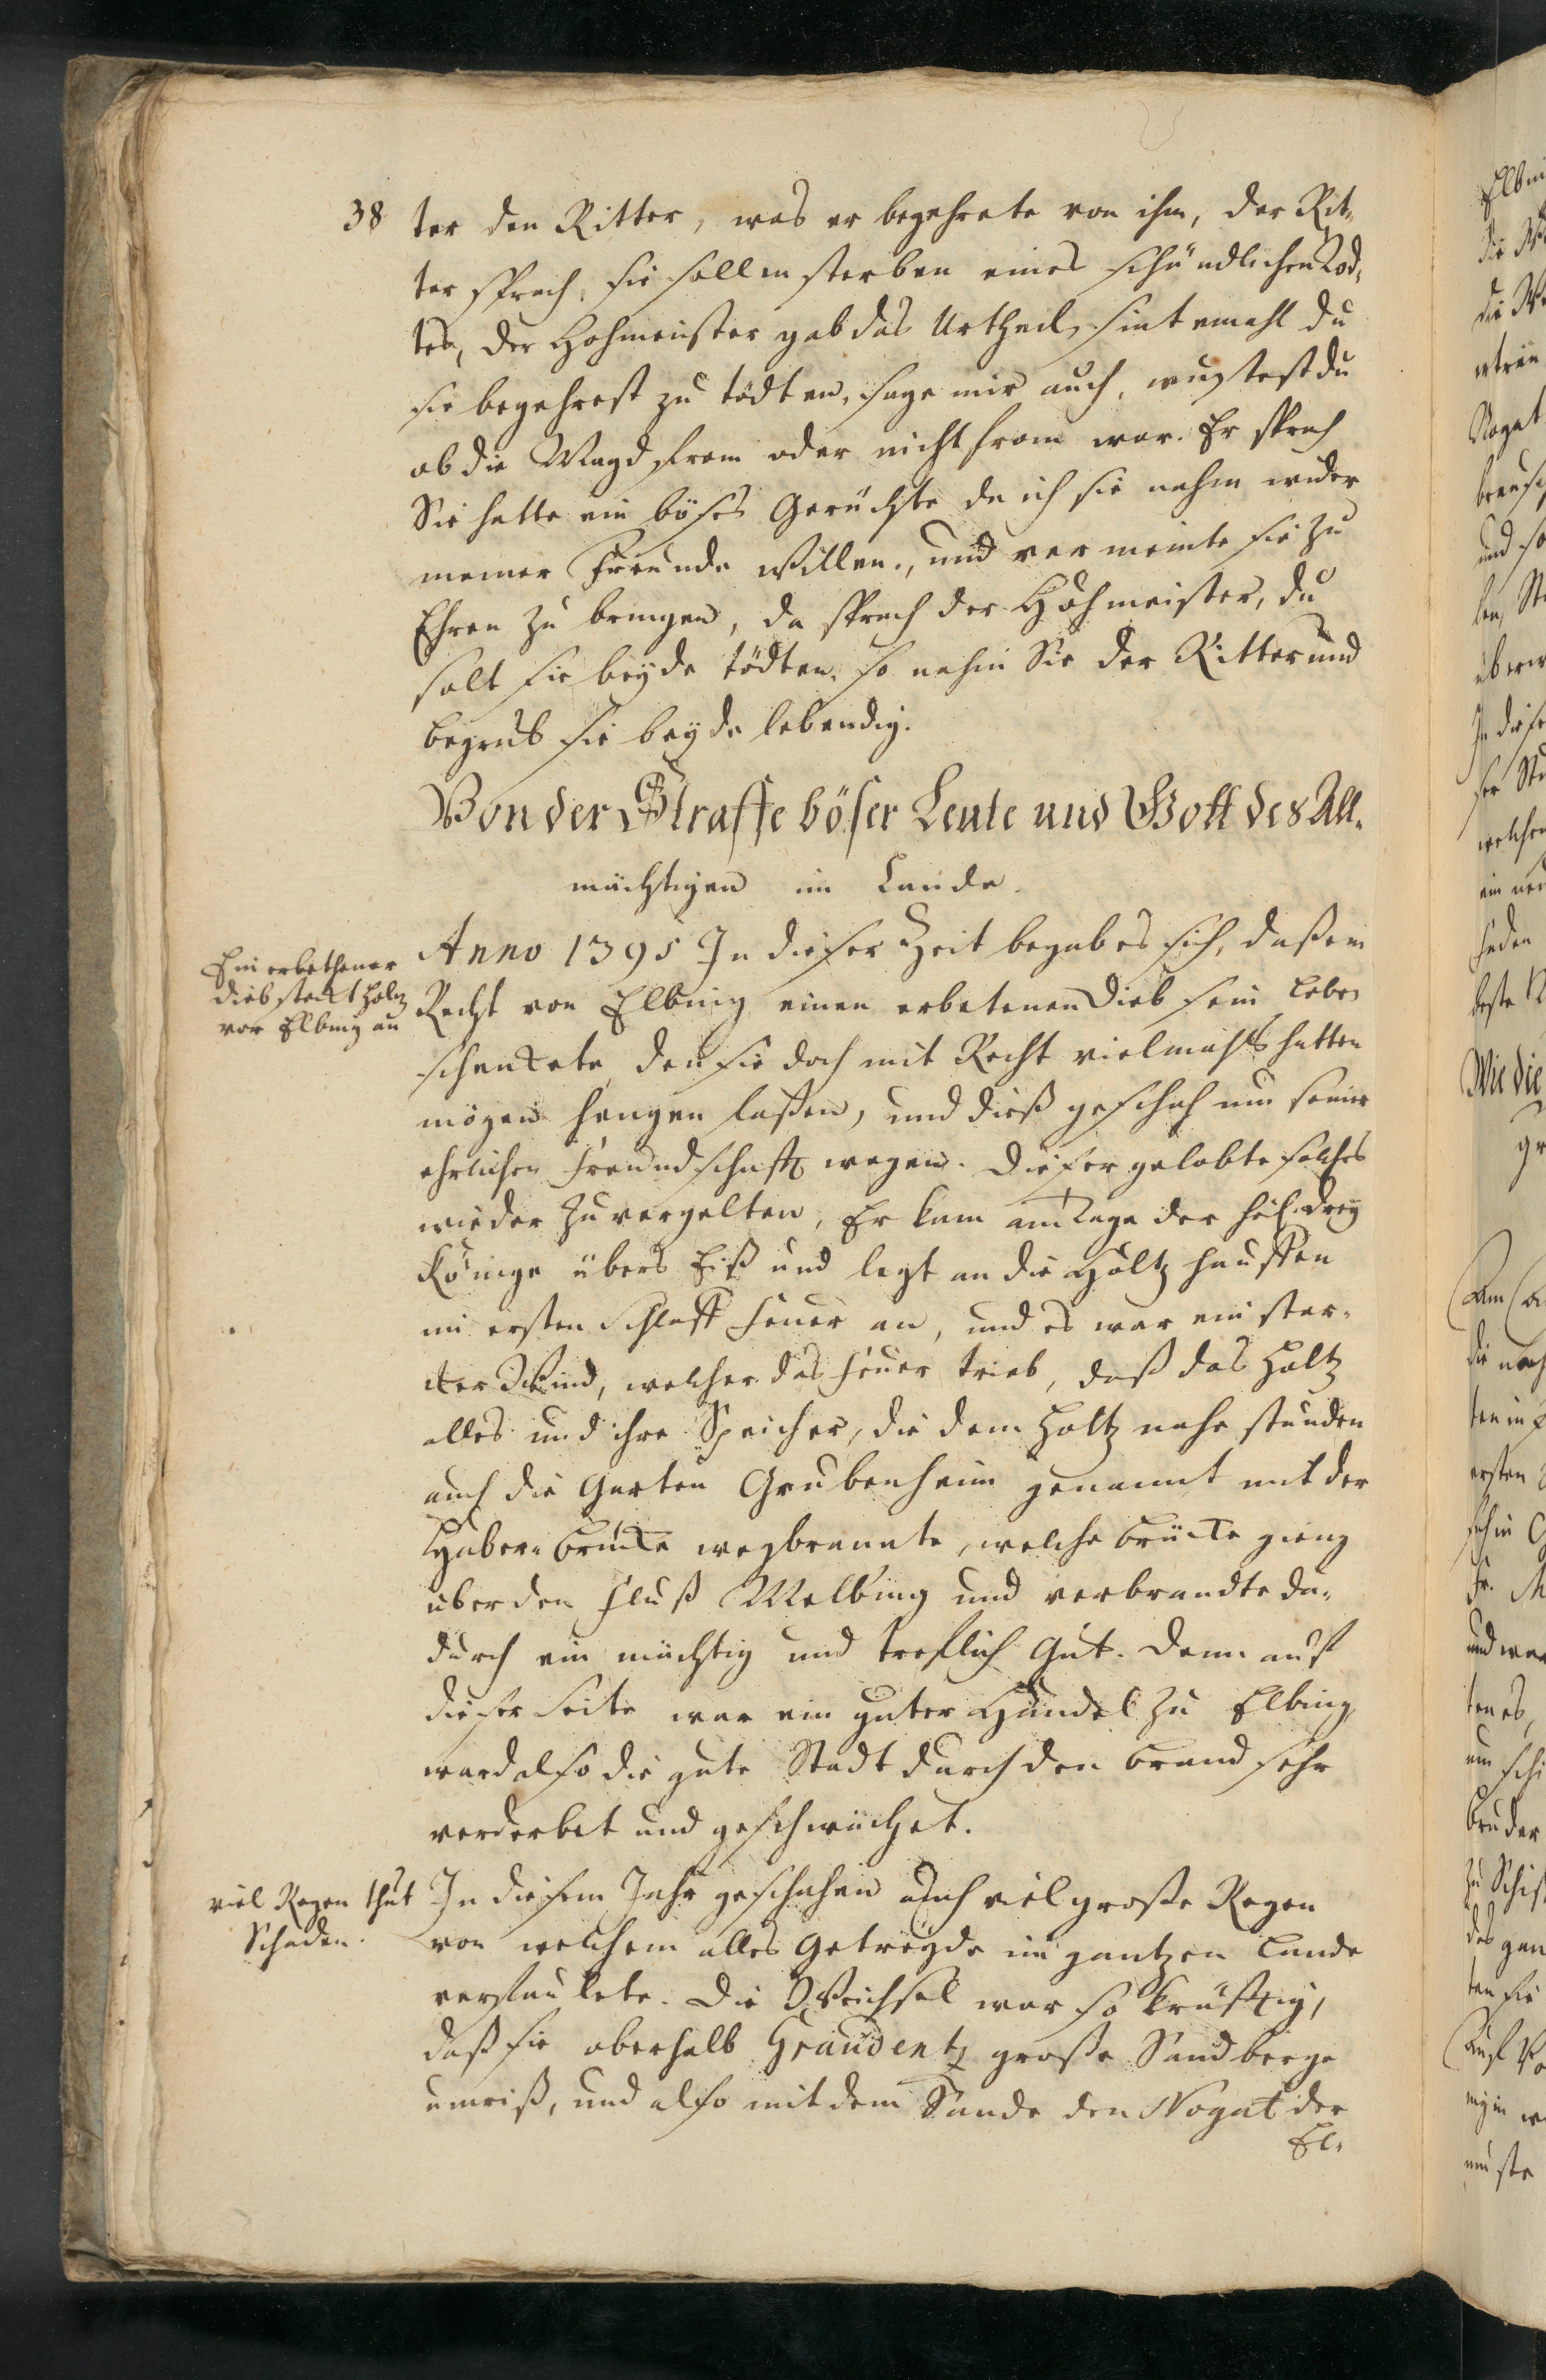 38
ter den Ritter, was er begehrete von ihm, der Rit-
ter sprach, sie sollen sterben eines schändlichen Tod-
tes, der Hohmeister gab das Urtheil, sintemahl du
sie begehrest zu tödten, sage mir auch, wustest du
ob die Magd from oder nicht from war. Er sprach
Sie hatte ein böses Gerüchte da ich sie nahm wider
meiner Freunde willen, und vermeinte sie zu
Ehren zu bringen, da sprach der Hohmeister, du
solt sie beyde tödten, so nahm Sie der Ritter und
begrub sie beyde lebendig.
Von der Straffe böser Leute und Gott des All-
mächtigen im Lande.
Ein erbethener
dieb steckt holtz
vor Elbing an
Anno 1395 In dieser Zeit begab es sich, daß ein
Recht von Elbing einen erbetenen Dieb sein leben
schenckete, den sie doch mit Recht vielmahls hatten
mögen hengen laßen, und dieß geschah um seiner
ehrlichen Freundschafft wegen. Dieser gelobte solches
wieder zu vergelten, Er kam am Tage der heil. drey
Könige übers Eiß und legt an die Holtz hauffen
im ersten Schlaff Feuer an, und es war ein star-
cker Wind, welcher das Feuer trieb, daß das Holtz
alles und ihre Speicher, die dem Holtz nahe stunden
auch die Garten Grubenheim genannt mit der
Haber-brücke wegbrannte, welche brücke gieng
über den Fluß Melbing und verbrandte da-
durch ein mächtig und treflich Gut. Denn auf
dieser Seite war ein guter Handel zu Elbing,
ward also die gute Stadt durch den brand sehr
verderbet und geschwächet.
viel Regen thut
Schaden.
In diesem Jahr geschahen auch viel große Regen
von welchem alles Getreyde im gantzen Lande
verfaulete. Die Weichsel war so kräfftig,
daß sie oberhalb Graudentz große Sandberge
umriß, und also mit dem Sande den Nogat der
El-